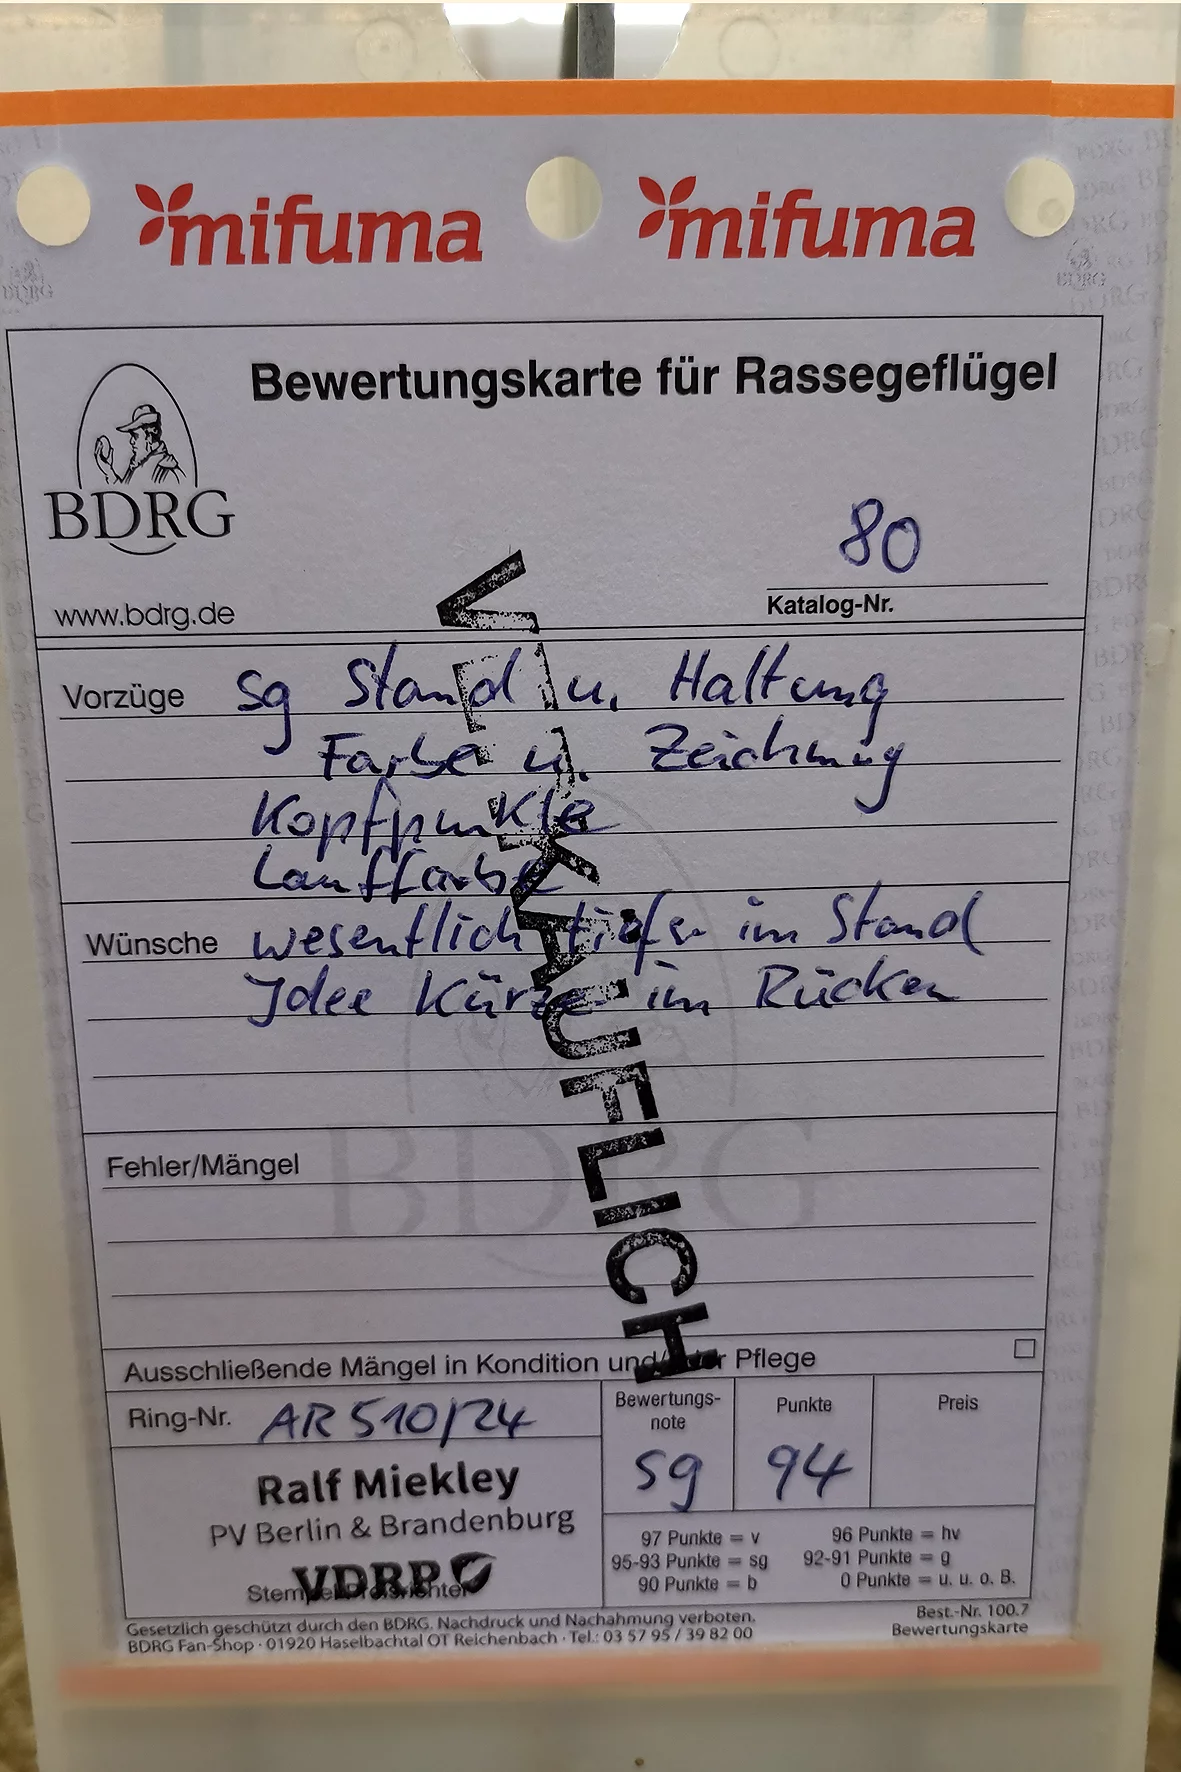 mifuma mifuma
Bewertungskarte für Rassegeflügel
BDRG
www.bdrg.de
80
Katalog-Nr.
VERKÄUFLICH
Vorzüge sg Stand u. Haltung
Farbe u. Zeichnung
Kopfpunkte
Lauffarbe
Wünsche wesentlich tiefer im Stand
Idee Kürze im Rücken
Fehler/Mängel
Ausschließende Mängel in Kondition und/oder Pflege
Ring-Nr. AR 510/24
Bewertungs-
note
sg
Punkte
94
Preis
Ralf Miekley
PV Berlin & Brandenburg
VDRP
Stempel Preisrichter
97 Punkte = v 96 Punkte = hv
95-93 Punkte = sg 92-91 Punkte = g
90 Punkte = b 0 Punkte = u. u. o. B.
Gesetzlich geschützt durch den BDRG. Nachdruck und Nachahmung verboten.
BDRG Fan-Shop · 01920 Haselbachtal OT Reichenbach · Tel.: 03 57 95 / 39 82 00
Best.-Nr. 100.7
Bewertungskarte